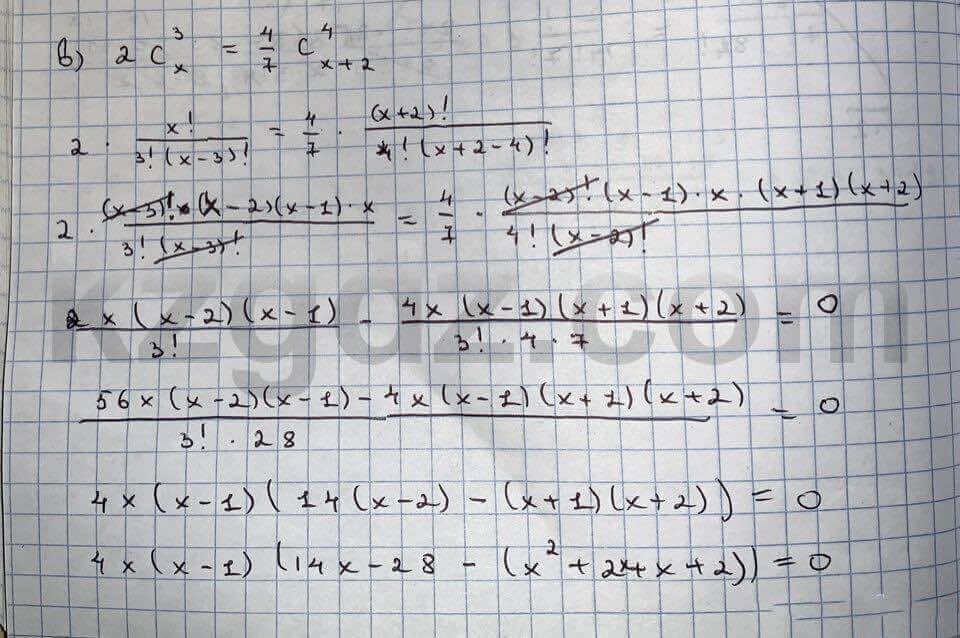 в) 2 C_x^3 = 4/7 C_{x+2}^4
2 · x!/(3!(x-3)!) = 4/7 · (x+2)!/(4!(x+2-4)!)
2 · (x-3)!·(x-2)(x-1)·x/(3!(x-3)!) = 4/7 · (x-2)!(x-1)·x·(x+1)(x+2)/(4!(x-2)!)
2x(x-2)(x-1)/3! - 4x(x-1)(x+1)(x+2)/(3!·4·7) = 0
kzgdz.com
(56x(x-2)(x-1)-4x(x-1)(x+1)(x+2))/(3!·28) = 0
4x(x-1)(14(x-2)-(x+1)(x+2)) = 0
4x(x-1)(14x-28-(x²+2x+x+2)) = 0